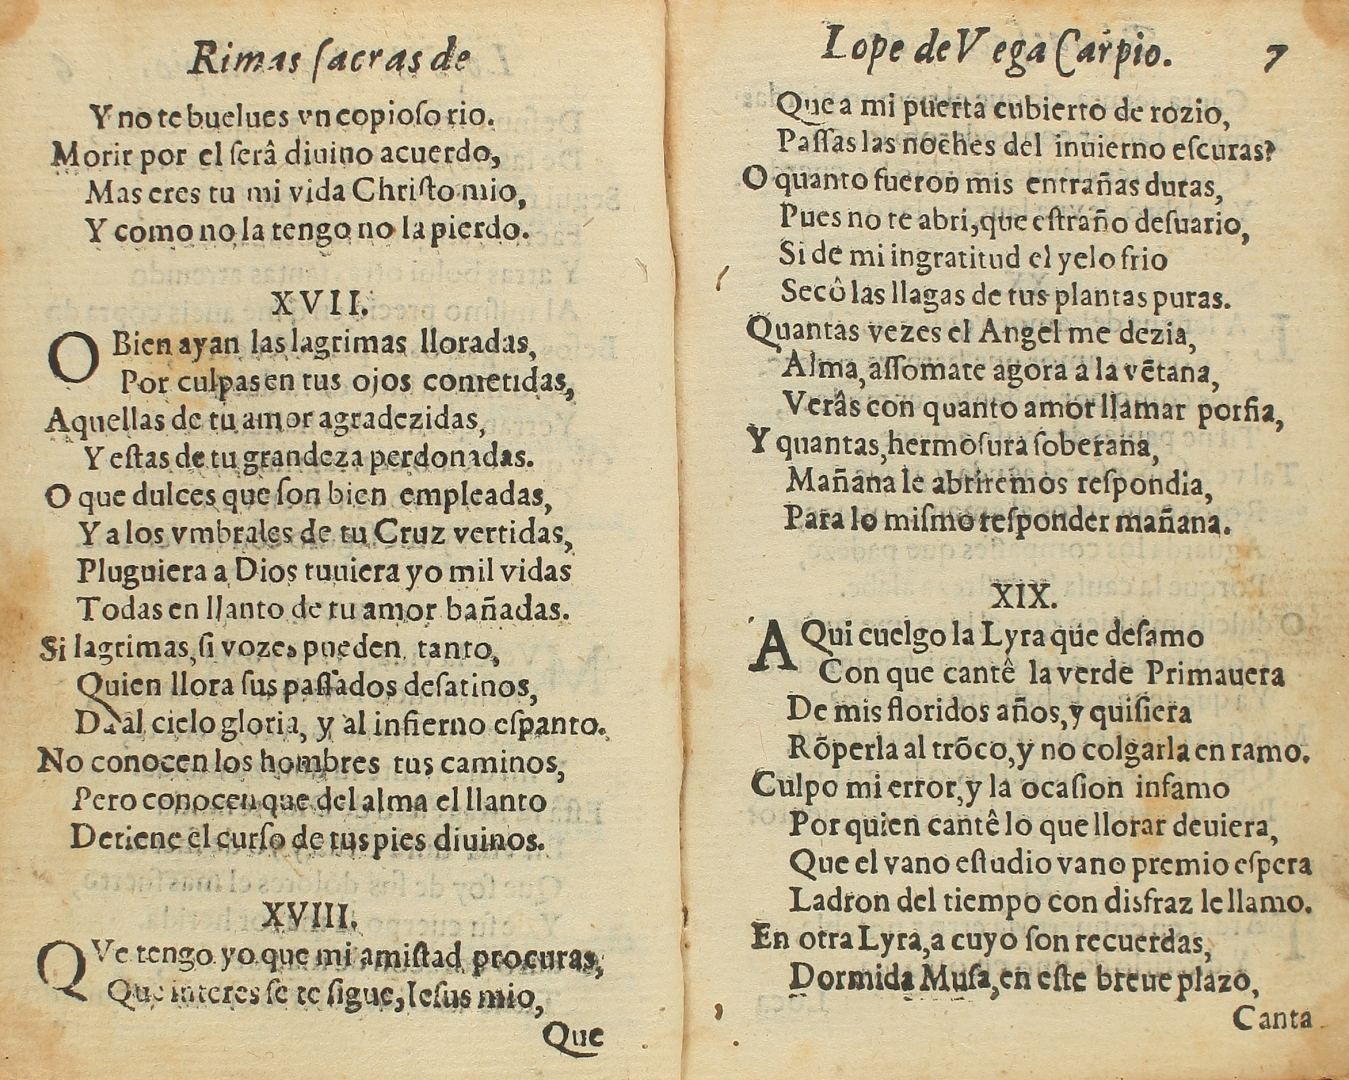 Rimas sacras de
Y no te buelues vn copioso rio.
Morir por el serâ diuino acuerdo,
Mas eres tu mi vida Christo mio,
Y como no la tengo no la pierdo.
XVII.
O Bien ayan las lagrimas lloradas,
Por culpas en tus ojos cometidas,
Aquellas de tu amor agradezidas,
Y estas de tu grandeza perdonadas.
O que dulces que son bien empleadas,
Y a los vmbrales de tu Cruz vertidas,
Pluguiera a Dios tuuiera yo mil vidas
Todas en llanto de tu amor bañadas.
Si lagrimas, si vozes pueden tanto,
Quien llora sus passados desatinos,
Da al cielo gloria, y al infierno espanto.
No conocen los hombres tus caminos,
Pero conocen que del alma el llanto
Detiene el curso de tus pies diuinos.
XVIII.
QVe tengo yo que mi amistad procuras,
Que interes se te sigue, Iesus mio,
Que
Lope de Vega Carpio. 7
Que a mi puerta cubierto de rozio,
Passas las noches del inuierno escuras?
O quanto fueron mis entrañas duras,
Pues no te abri, que estraño desuario,
Si de mi ingratitud el yelo frio
Secô las llagas de tus plantas puras.
Quantas vezes el Angel me dezia,
Alma, assomate agora a la vẽtana,
Verâs con quanto amor llamar porfia,
Y quantas, hermosura soberana,
Mañana le abriremos respondia,
Para lo mismo responder mañana.
XIX.
AQui cuelgo la Lyra que desamo
Con que cantê la verde Primauera
De mis floridos años, y quisiera
Rõperla al trõco, y no colgarla en ramo.
Culpo mi error, y la ocasion infamo
Por quien cantê lo que llorar deuiera,
Que el vano estudio vano premio espera
Ladron del tiempo con disfraz le llamo.
En otra Lyra, a cuyo son recuerdas,
Dormida Musa, en este breue plazo,
Canta